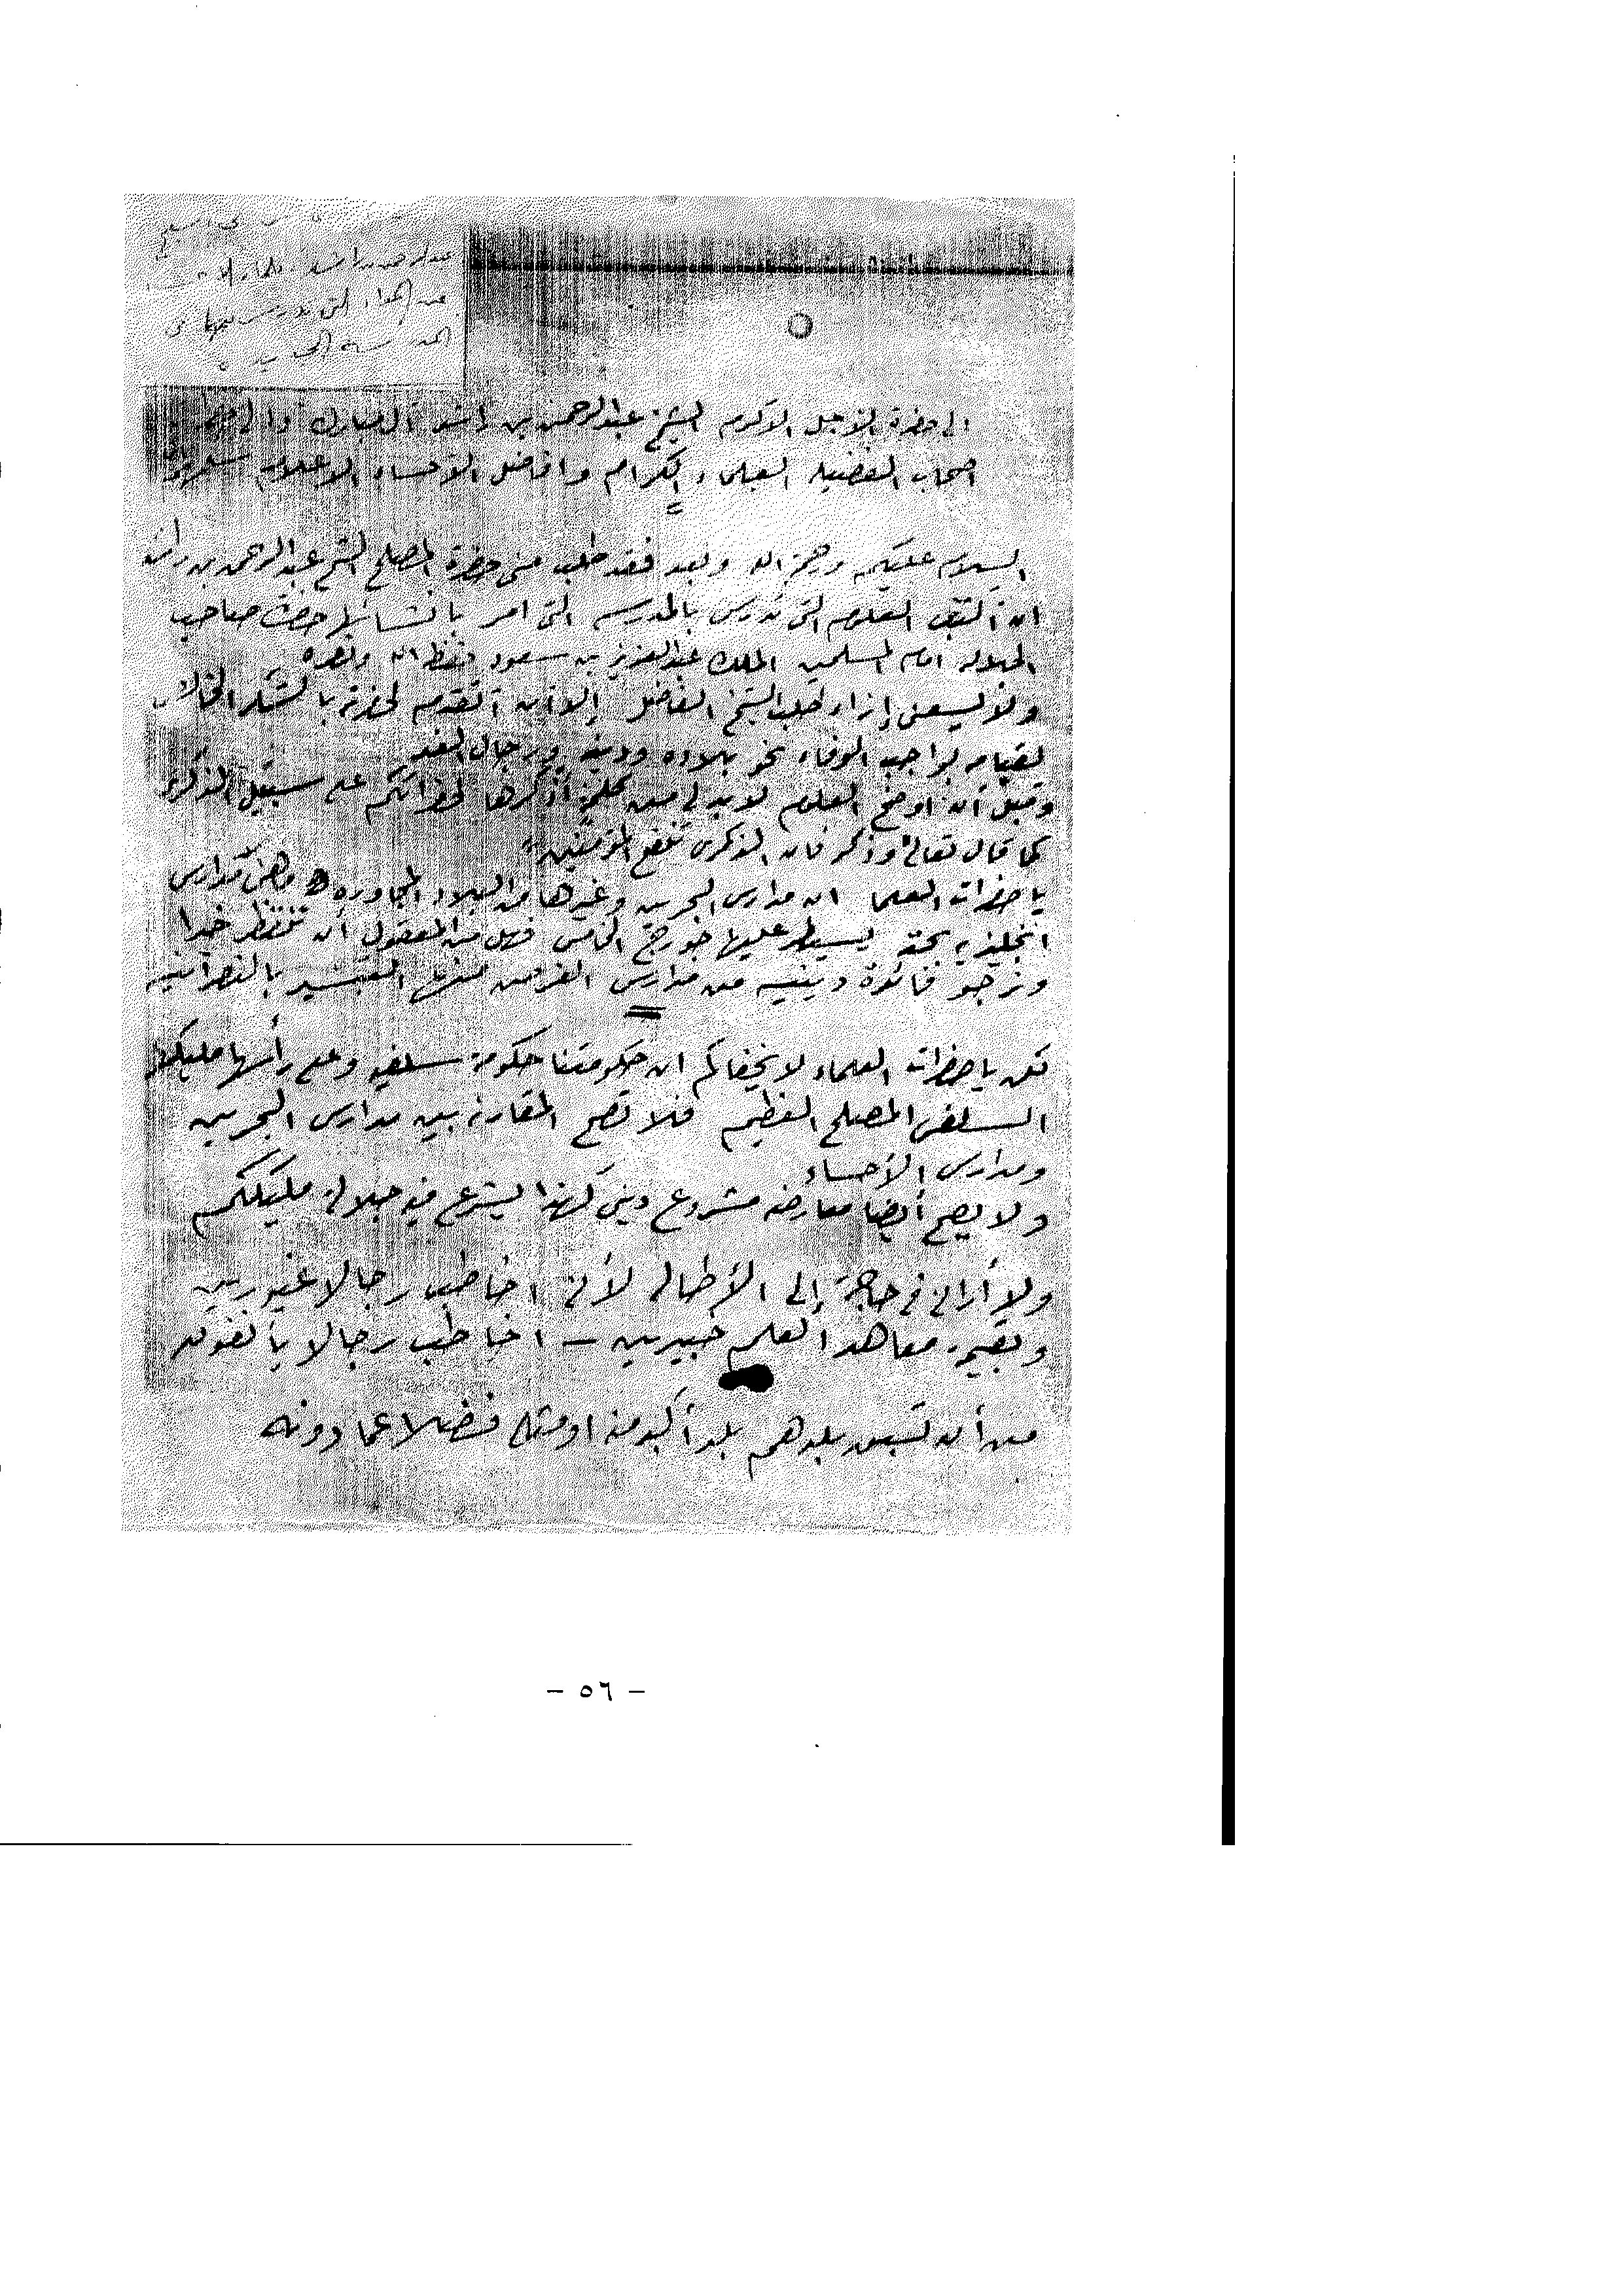 الى حضرة الاجل الاكرم الشيخ عبدالرحمن بن راشد آل مبارك والى
اصحاب الفضيله العلماء الكرام وافاضل الاحساء الاعلام
السلام عليكم ورحمة الله وبعد فقد طلب منى حضرة المصلح الشيخ عبدالرحمن بن راشد
ان اكتب العلوم التى تدرس بالمدرسه التى امر بانشائها حضرت صاحب
الجلاله امام المسلمين الملك عبدالعزيز بن سعود حفظه الله ونصره
ولا يسعنى إزاء طلب الشيخ الفاضل إلا أن أتقدم لحضرته بالشكر الخالص
لقيامه بواجب الوفاء نحو بلاده ودينه ورجال الغد
وقبل أن اوضح العلوم لابد لى من كلمة أذكرها لحضراتكم على سبيل الذكرى
كما قال تعالى "وذكر فان الذكرى تنفع المؤمنين"
يا حضرات العلما ان مدارس البحرين وغيرها من البلاد المجاوره هى مدارس
انجليزيه بحته يسيطر عليها جورج الخامس فهل من المعقول أن ننتظر خيرا
ونرجو فائدة دينيه من مدارس الغرض منها التبشير بالنصرانيه
لكن يا حضرات العلماء لا يخفاكم ان حكومتنا حكومة سلفيه وعلى رأسها مليكها
السلفى المصلح العظيم فلا تصح المقارنه بين مدارس البحرين
ومدارس الأحساء
ولا يصح أيضا معارضه مشروع دينى كهذا يشرع فيه جلالة مليككم
ولا أرانى فى حاجة إلى الأطاله لأنى اخاطب رجالا غيورين
وبقيمة معاهد العلم خبيرين – اخاطب رجالا يأنفون
من أن تسبق بلدهم بلد أكبر منه او مثله فضلا عما دونه
- ٥٦ -